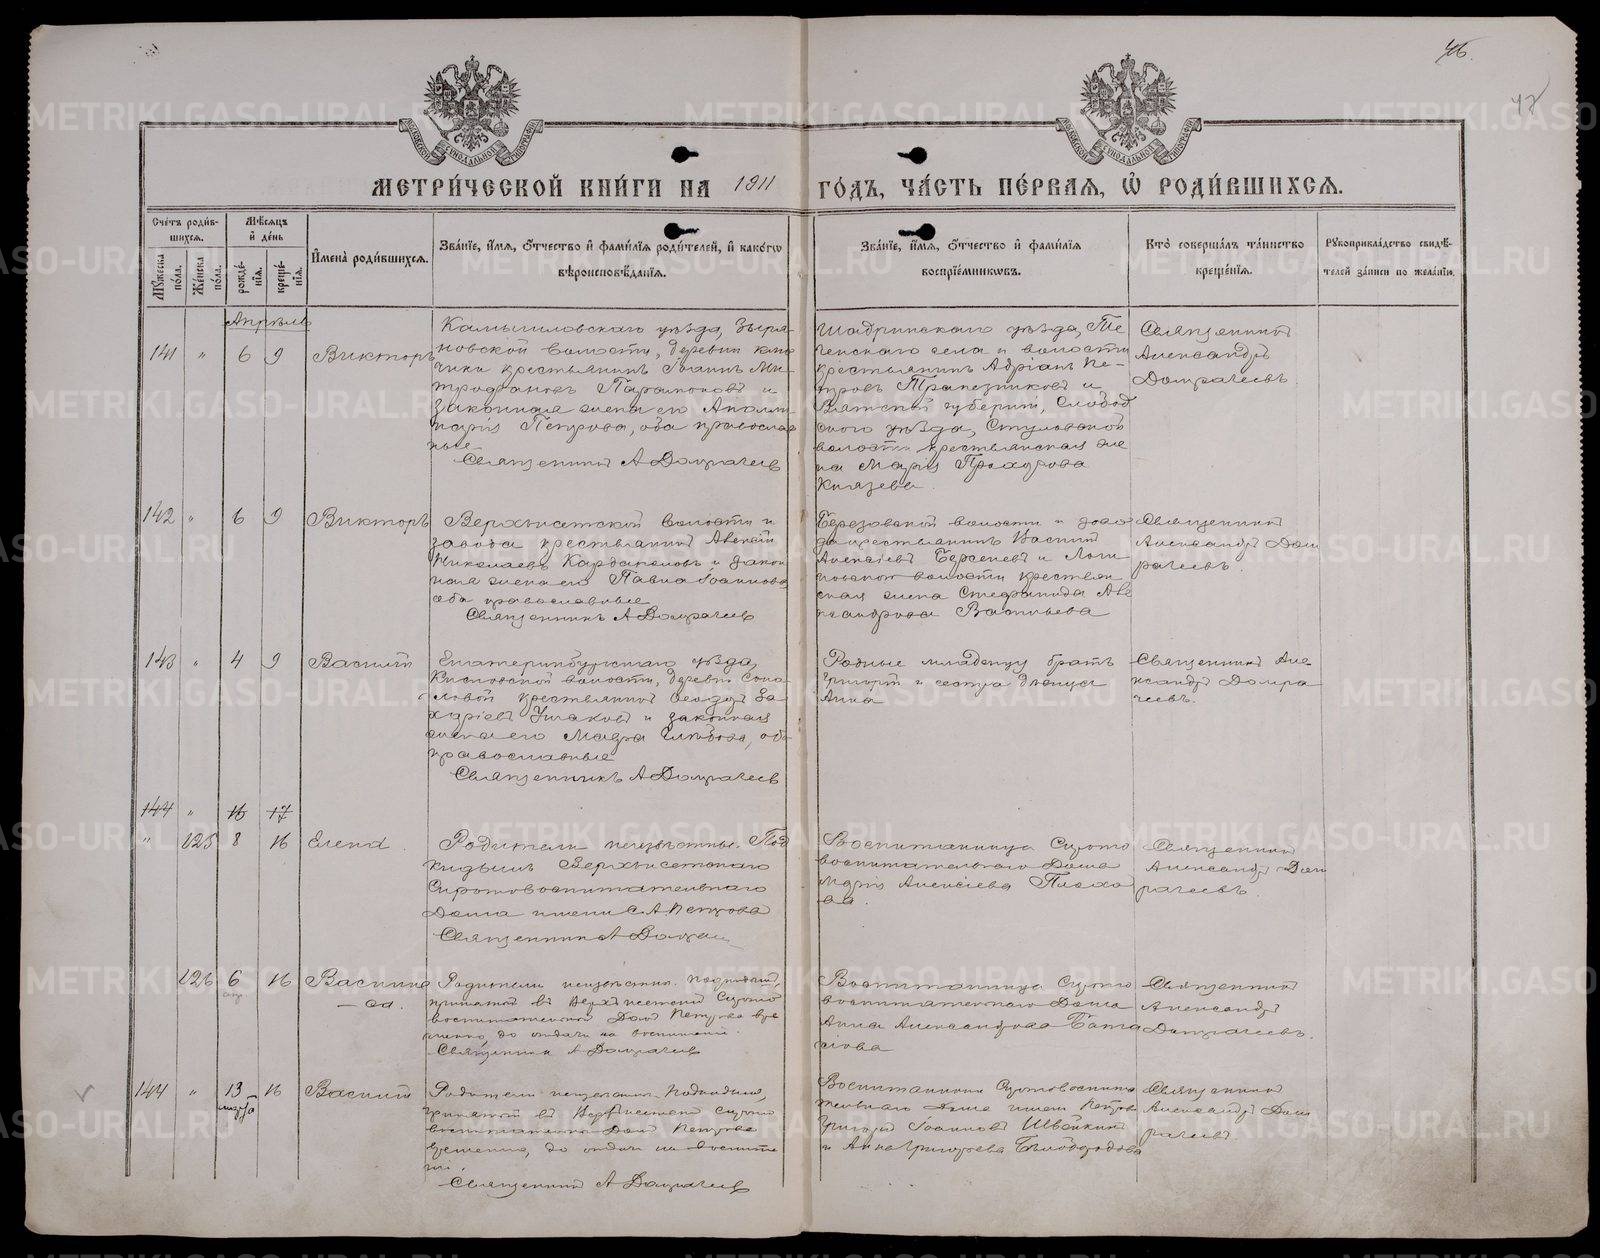 46.
47
МЕТРИ́ЧЕСКОЙ КНИ́ГИ НА 1911 ГО́ДЪ, ЧА́СТЬ ПЕ́РВАЯ, Ѡ РОДИ́ВШИХСЯ.
Сче́тъ роди́в-
шихся.
Му́жеска по́ла.
Же́нска по́ла.
Мѣ́сяцъ и де́нь
рожде́нія.
креще́нія.
Имена̀ роди́вшихся.
Зва́ніе, и́мя, о́тчество и фами́лія роди́телей, и како́гѡ
вѣроисповѣ́данія.
Зва́ніе, и́мя, о́тчество и фами́лія
воспрїе́мниковъ.
Кто̀ соверша́лъ та́инство
креще́нія.
Рукоприкла́дство свидѣ́-
телей за́писи по жела́нію.
Апрѣль
141 " 6 9 Викторъ
Камышловскаго уѣзда, Зыря-
новской волости, деревни Клю-
чики крестьянинъ Іоаннъ Ми-
трофановъ Парамоновъ и
законная жена его Аполли-
нарія Петрова, оба православ
ные
Священникъ А Домрачеев
Шадринскаго уѣзда, Те
ченскаго села и волости
крестьянинъ Адріанъ Пе-
тровъ Трапезниковъ и
Вятской губерніи, Слобод
ского уѣзда,
волости крестьянская же
на Марія Прохорова
Князева
Священникъ
Александръ
Домрачеевъ
142 " 6 9 Викторъ
Верхъисетской волости и
завода крестьянинъ Алексѣй
Николаевъ Кардаполовъ и закон
ная жена его Павла Іоаннова
оба православные
Священникъ А Домрачеев
Березовской волости и заво
да крестьянинъ Василій
Алексѣевъ Берсеневъ и Логи
новской волости крестьян
ская жена Стефанида Але
ксандрова Васильева
Священникъ
Александръ Дом
рачеевъ
143 " 4 9 Василій
Екатеринбургскаго уѣзда,
волости, деревни Соко
ловой крестьянинъ Ѳеодоръ За
харіевъ Ушаковъ и законная
жена его Мавра Глѣбова, оба
православные
Священникъ А Домрачеев
Родные младенцу братъ
Григорій и сестра дѣвица
Анна
Священникъ Але
ксандръ Домра
чеевъ.
144 " 16 17
" 125 8 16 Елена
Родители неизвѣстны. Под
кидышъ Верхъисетскаго
Сиротовоспитательнаго
Дома имени С. А. Петрова
Священникъ А Домрач
Воспитанница Сирото
воспитательнаго Дома
Марія Алексѣева Плохо
ва.
Священникъ
Александръ Дом
рачеевъ
126 6 16 Васили
апр
са.
Родители неизвѣстны. Подкидышъ,
принятый въ Верхъисетскій Сирото
воспитательный Домъ Петрова вре
менно, до отдачи на воспитаніе.
Священникъ А Домрачеев
Воспитанница Сирото
воспитательнаго Дома
Анна Александрова
Священникъ
Александръ
Домрачеевъ.
144 " 13 16 Василій
марта
Родители неизвѣстны. Подкидышъ,
принятый въ Верхъисетскій сирото
воспитательный Домъ Петрова
временно, до отдачи на воспита
ніе.
Священникъ А Домрачеев
Воспитанники Сиротовоспита
тельнаго Дома имени Петрова
Григорій Іоанновъ Швейкинъ
и Анна Григорьева Бѣлобородова
Священникъ
Александръ Дом
рачеевъ
METRIKI.GASO-URAL.RU